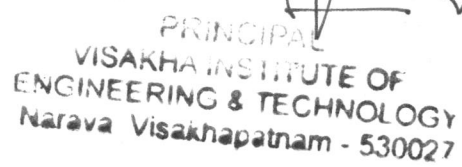 PRINCIPAL
VISAKHA INSTITUTE OF
ENGINEERING & TECHNOLOGY
Narava Visakhapatnam - 530027